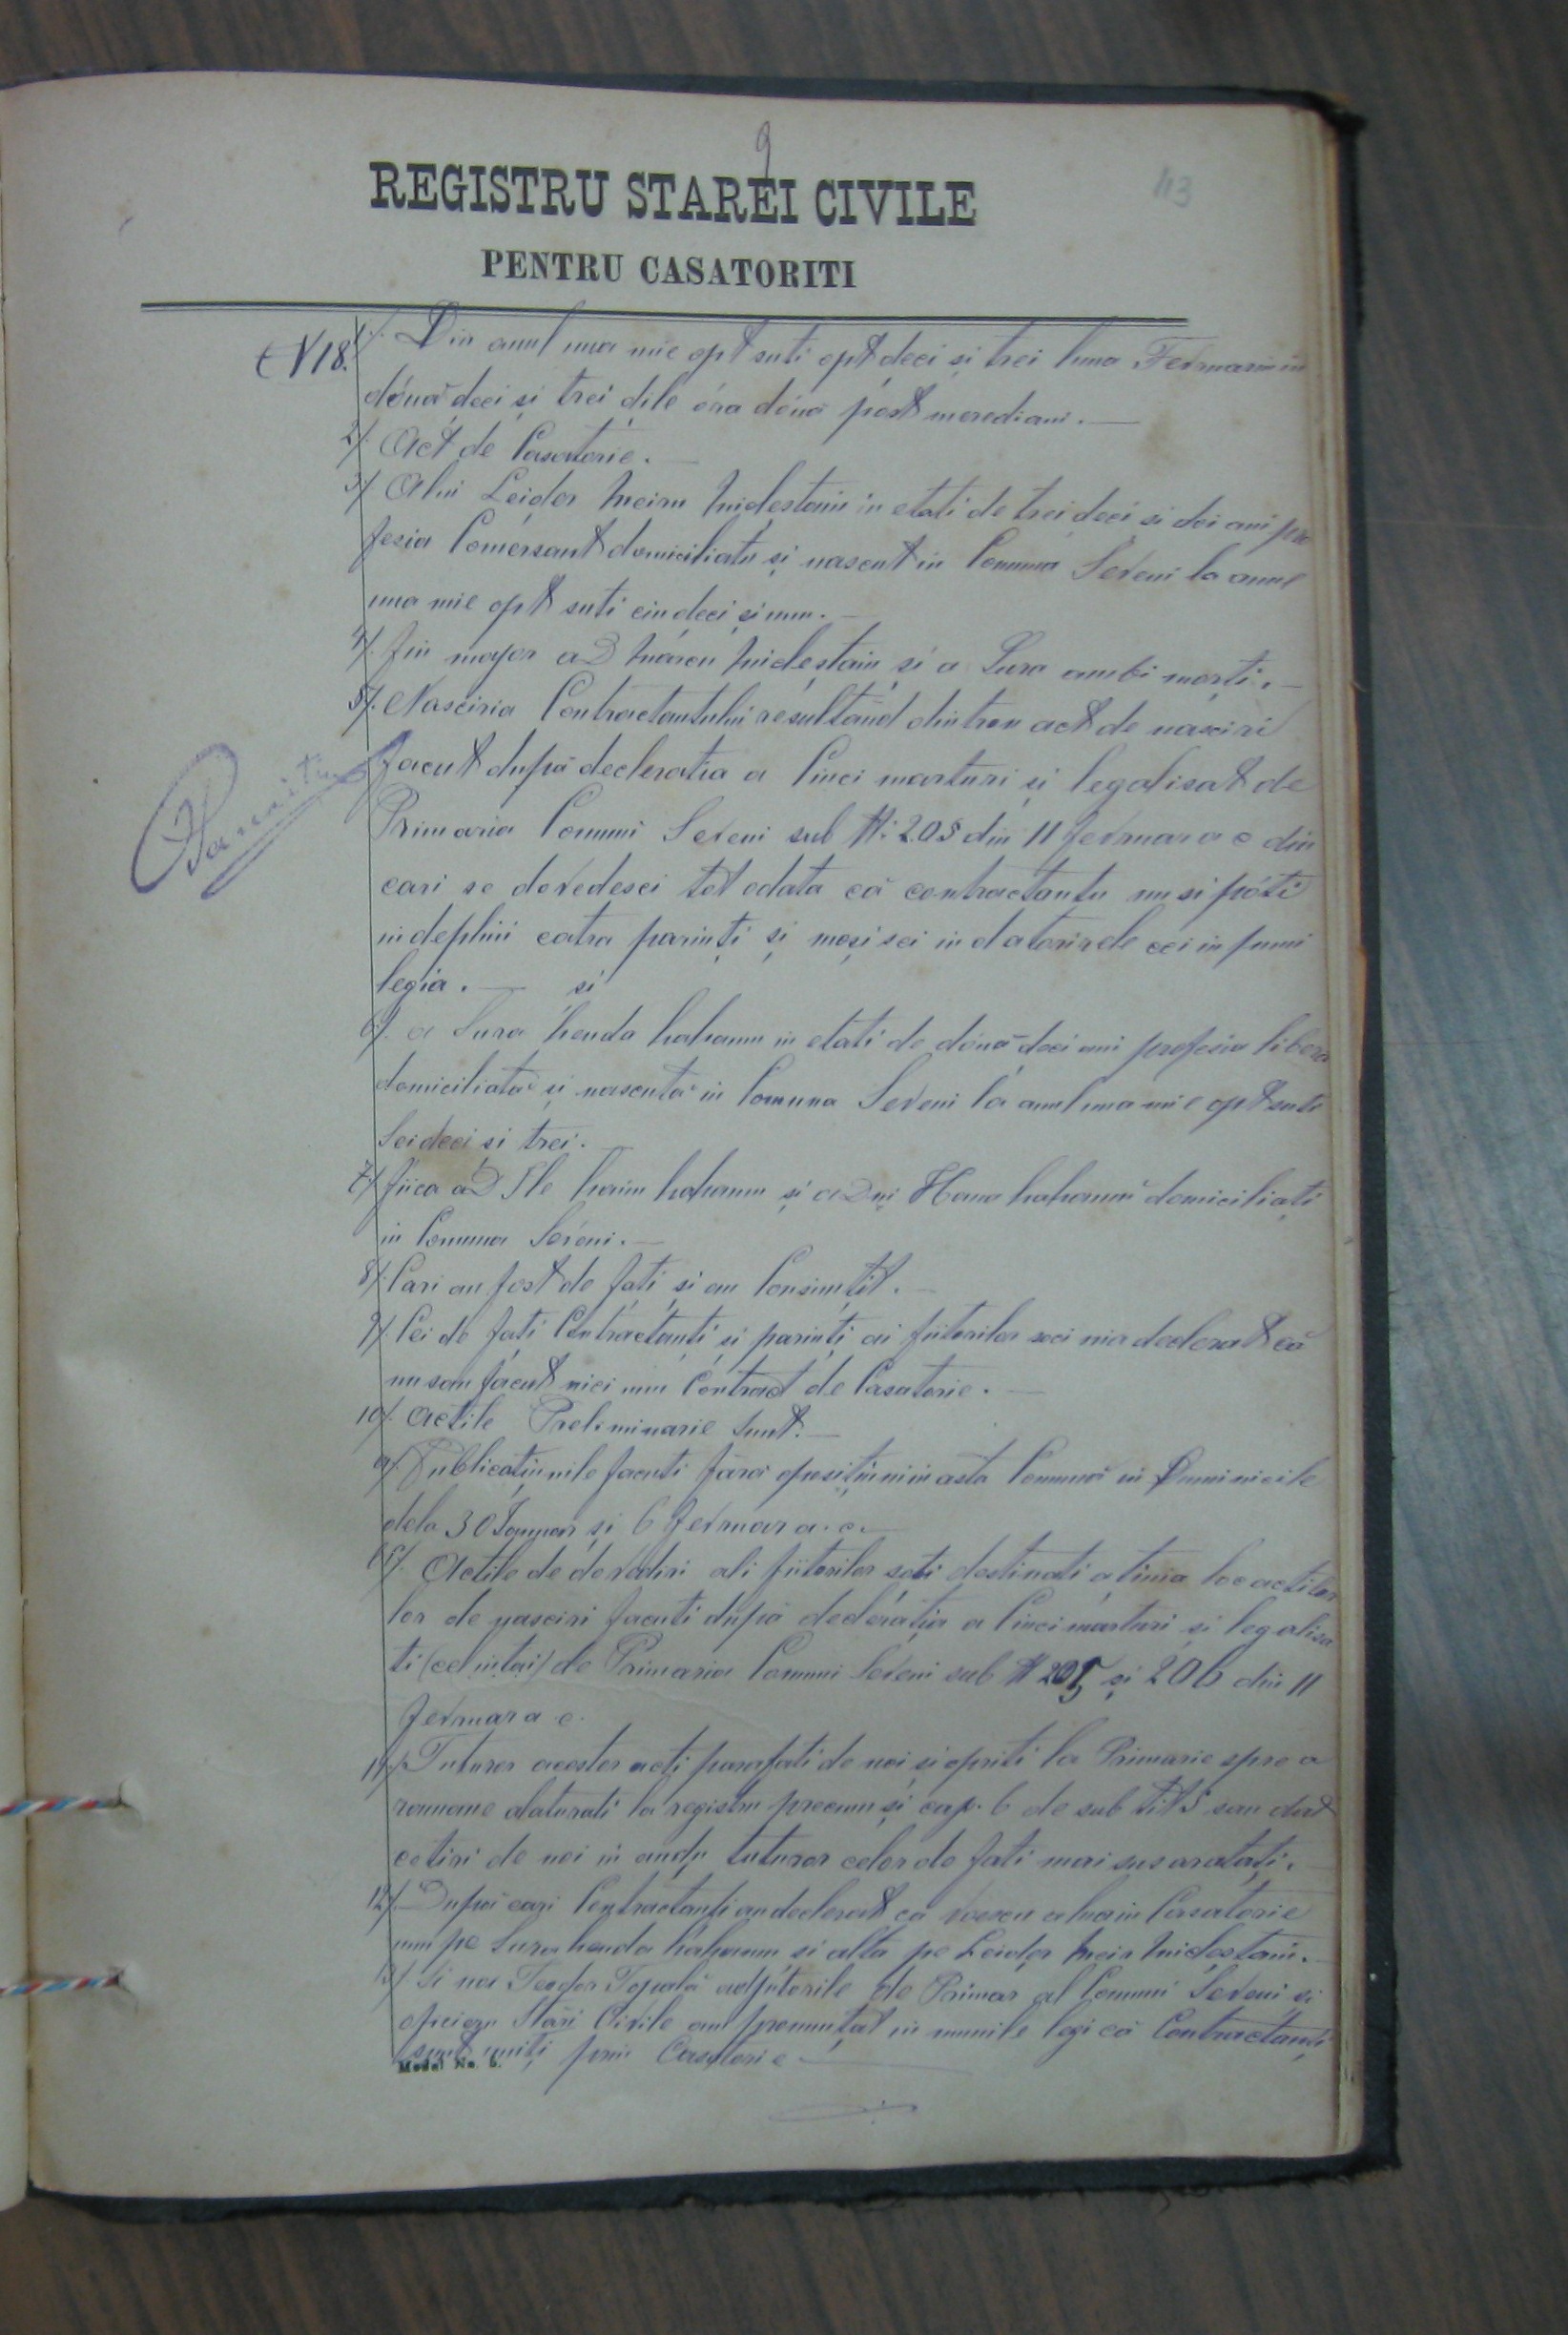 9
113
REGISTRU STAREI CIVILE
PENTRU CASATORITI
N 18.
1/. Din anul una mie opt suti opt deci și trei luna Fevruariu în
dóuă deci și trei dile óra dóuă post merediani.—
2/. Act de Casatorie.—
3/ Alui Leider in etati de trei deci si doi ani pro
fesia Comersant domiciliatu și nascut in Comuna Saveni la anul
una mie opt suti cin deci și unu.—
4/. fiu major aD și a Sura ambi morți.—
5/. Nasciria Contractantului resultănd dintrun act de nasciri
facut după decleratia a Cinci marturi și legalisat de
Primaria Comuni Saveni sub N: 205 din 11 fevruar a c din
cari se dovedesci tot odata că contractantu nu si póti
indeplini catra parinți și moși sei indatorirele cei inpuni
legia.— și
6/. a Sura henda hahamu in etati de dóuă deci ani profesia libera
domiciliată și nascută in Comuna Saveni la anul una mie opt suti
Seideci și trei.
7/ fiica aD Sle haim hahamu și aDni Hana hahamu domiciliați
in Comuna Saveni.—
8/. Cari au fost de fați și au Consimțit.—
9/. Cei de fați Contractanți și parinți ai fiitorilor soci nia declerat că
nu sau facut nici unu Contract de Casatorie.—
10/. Actile Preliminarie Sunt.—
a/. Publicațiunile facuti fără oposițiuni in asta Comună in Duminicile
dela 30 Ianuar și 6 fevruar a. c.—
b/. Actile de dovediri ali fiitorilor soți destinati a tinia loc actilor
lor de nasciri facuti după decleratia a Cinci marturi și legalisa
ti (cel intai) de Primaria Comuni Saveni sub N 205 și 206 din 11
fevruar a c.
11/. Tuturor acestor acti parafati de noi și opriti la Primarie spre a
romane alaturati la registru precum și cap. 6 de sub tit 5 sau dat
cetiri de noi in audu tuturor celor de fati mai sus aratați.—
12/. După cari Contractanți au declerat ca voescu a lua in Casatorie
unu pe Sura henda hahamu și alta pe Leider
13/ Si noi Teodor adjutorile de Primar al Comuni Saveni și
oficieru Stări Civile am pronunțat in numile legi că Contractanți
sunt uniți prin Casatorie—
Model No. 5.